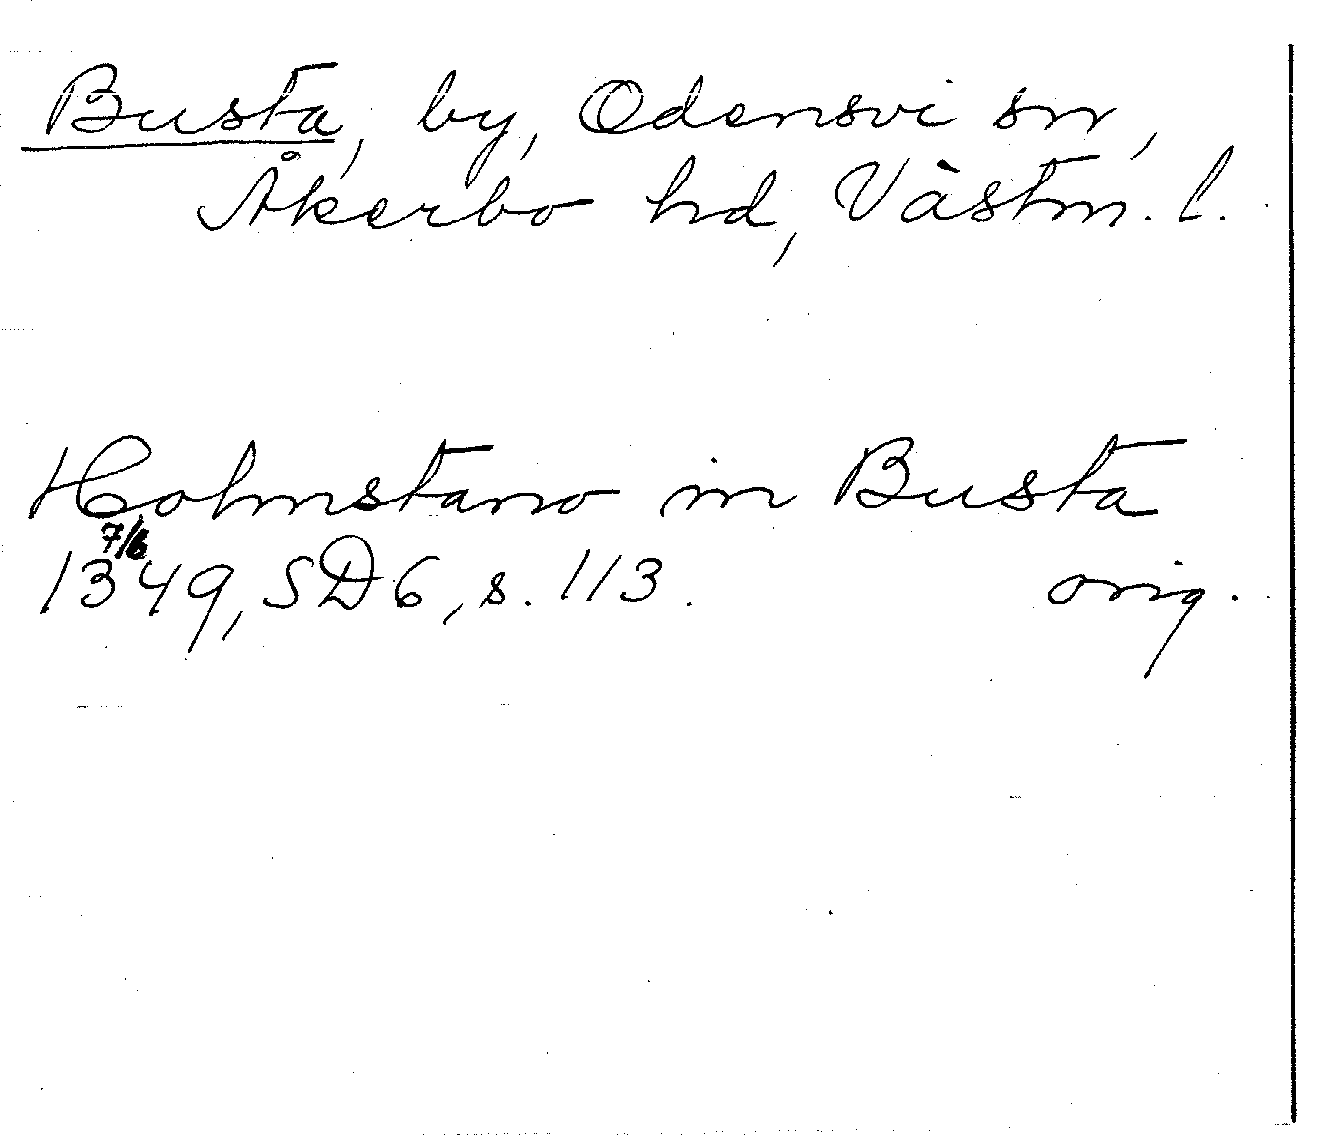 Busta, by, Odensvi sn,
Åkerbo hd, Västm. l.
Holmstano in Busta
7/6
1349, SD 6, s. 113. orig.